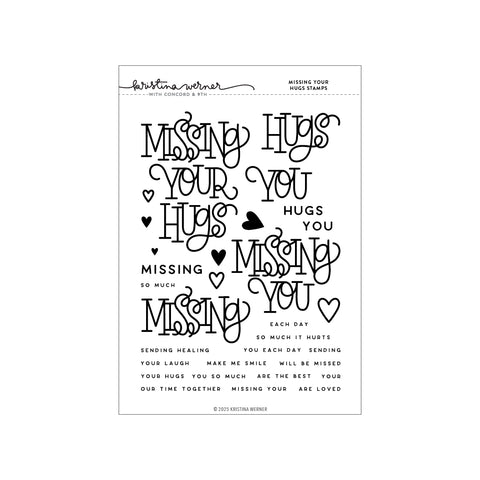 kristina werner
WITH CONCORD & 9TH
MISSING YOUR
HUGS STAMPS
MISSING
YOUR
HUGS
HUGS
YOU
HUGS
YOU
MISSING
SO MUCH
MISSING
YOU
MISSING
EACH DAY
SO MUCH IT HURTS
SENDING HEALING YOU EACH DAY SENDING
YOUR LAUGH MAKE ME SMILE WILL BE MISSED
YOUR HUGS YOU SO MUCH ARE THE BEST YOUR
OUR TIME TOGETHER MISSING YOUR ARE LOVED
© 2023 KRISTINA WERNER